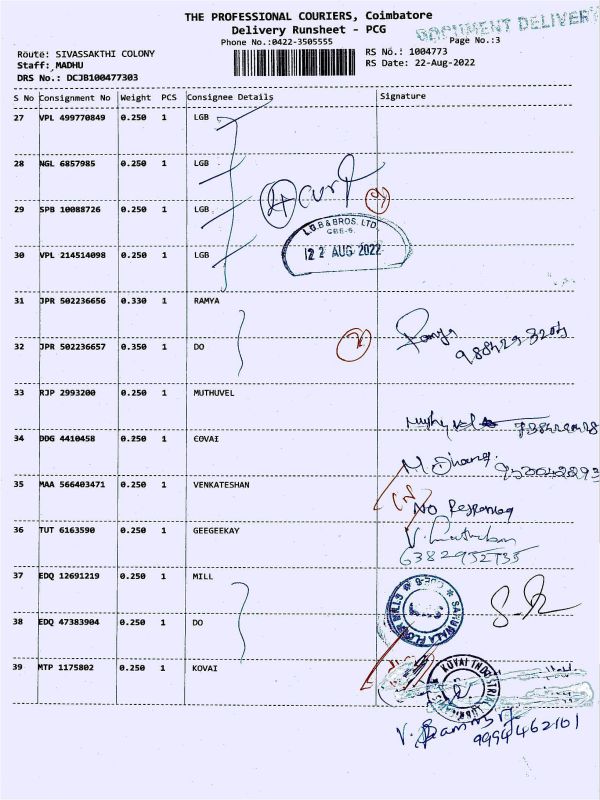 THE PROFESSIONAL COURIERS, Coimbatore
Delivery Runsheet - PCG
DOCUMENT DELIVERY
Phone No.:0422-3505555
Page No.:3
Route: SIVASSAKTHI COLONY
RS No.: 1004773
Staff: MADHU
RS Date: 22-Aug-2022
DRS No.: DCJB100477303
S No Consignment No Weight PCS Consignee Details Signature
27 VPL 499770849 0.250 1 LGB
28 NGL 6857985 0.250 1 LGB
29 SPB 10088726 0.250 1 LGB
L.G.B & BROS. LTD.
CBE-6.
22 AUG 2022
30 VPL 214514098 0.250 1 LGB
31 JPR 502236656 0.330 1 RAMYA
Ramya
32 JPR 502236657 0.350 1 DO
33 RJP 2993200 0.250 1 MUTHUVEL
Muthuvel
34 DDG 4410458 0.250 1 COVAI
M. Dhana
35 MAA 566403471 0.250 1 VENKATESHAN
No Response
36 TUT 6163590 0.250 1 GEEGEEKAY
6382952735
37 EDQ 12691219 0.250 1 MILL
38 EDQ 47383904 0.250 1 DO
39 MTP 1175802 0.250 1 KOVAI
KOVAI INDUSTRIAL
9994462101